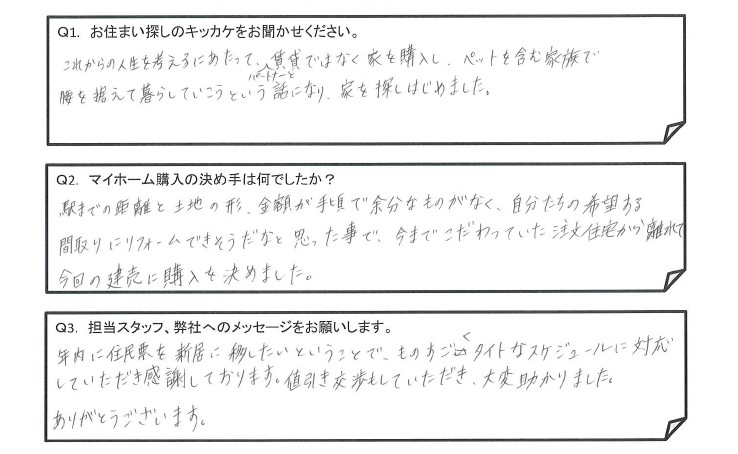 Q1. お住まい探しのキッカケをお聞かせください。
これからの人生を考えるにあたって、賃貸ではなく家を購入し、ペットを含む家族で
パートナーと
腰を据えて暮らしていこうという話になり、家を探しはじめました。
Q2. マイホーム購入の決め手は何でしたか？
駅までの距離と土地の形、金額が手頃で余分なものがなく、自分たちの希望する
間取りにリフォームできそうだなと思った事で、今までこだわっていた注文住宅から離れて
今回の建売に購入を決めました。
Q3. 担当スタッフ、弊社へのメッセージをお願いします。
年内に住民票を新居に移したいということで、ものすごくタイトなスケジュールに対応
していただき感謝しております。値引き交渉もしていただき、大変助かりました。
ありがとうございます。